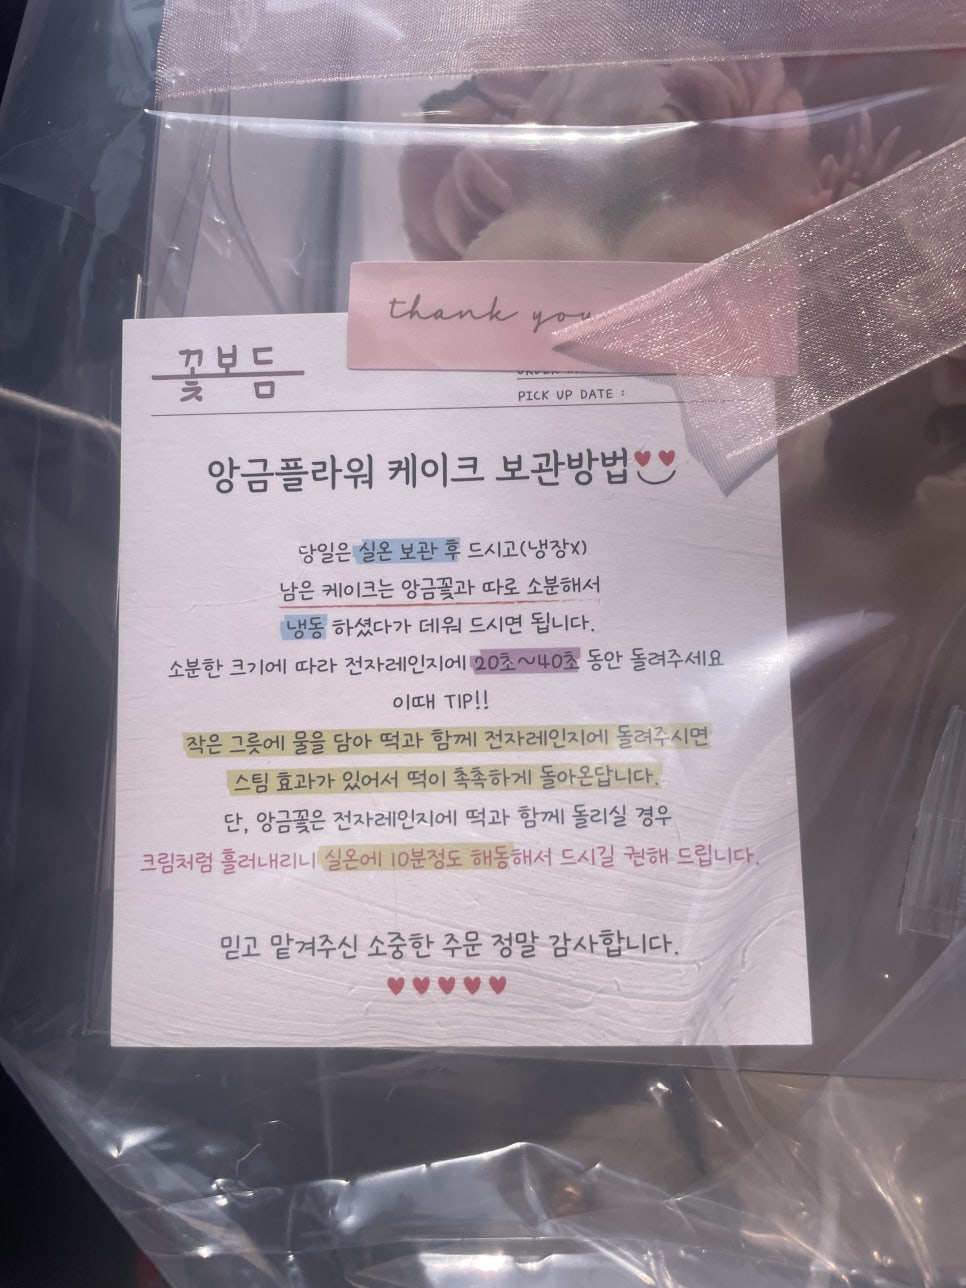 thank you
꽃보듬
PICK UP DATE :
앙금플라워 케이크 보관방법
당일은 실온 보관 후 드시고(냉장X)
남은 케이크는 앙금꽃과 따로 소분해서
냉동 하셨다가 데워 드시면 됩니다.
소분한 크기에 따라 전자레인지에 20초~40초 동안 돌려주세요
이때 TIP!!
작은 그릇에 물을 담아 떡과 함께 전자레인지에 돌려주시면
스팀 효과가 있어서 떡이 촉촉하게 돌아온답니다.
단, 앙금꽃은 전자레인지에 떡과 함께 돌리실 경우
크림처럼 흘러내리니 실온에 10분정도 해동해서 드시길 권해 드립니다.
믿고 맡겨주신 소중한 주문 정말 감사합니다.
♥♥♥♥♥